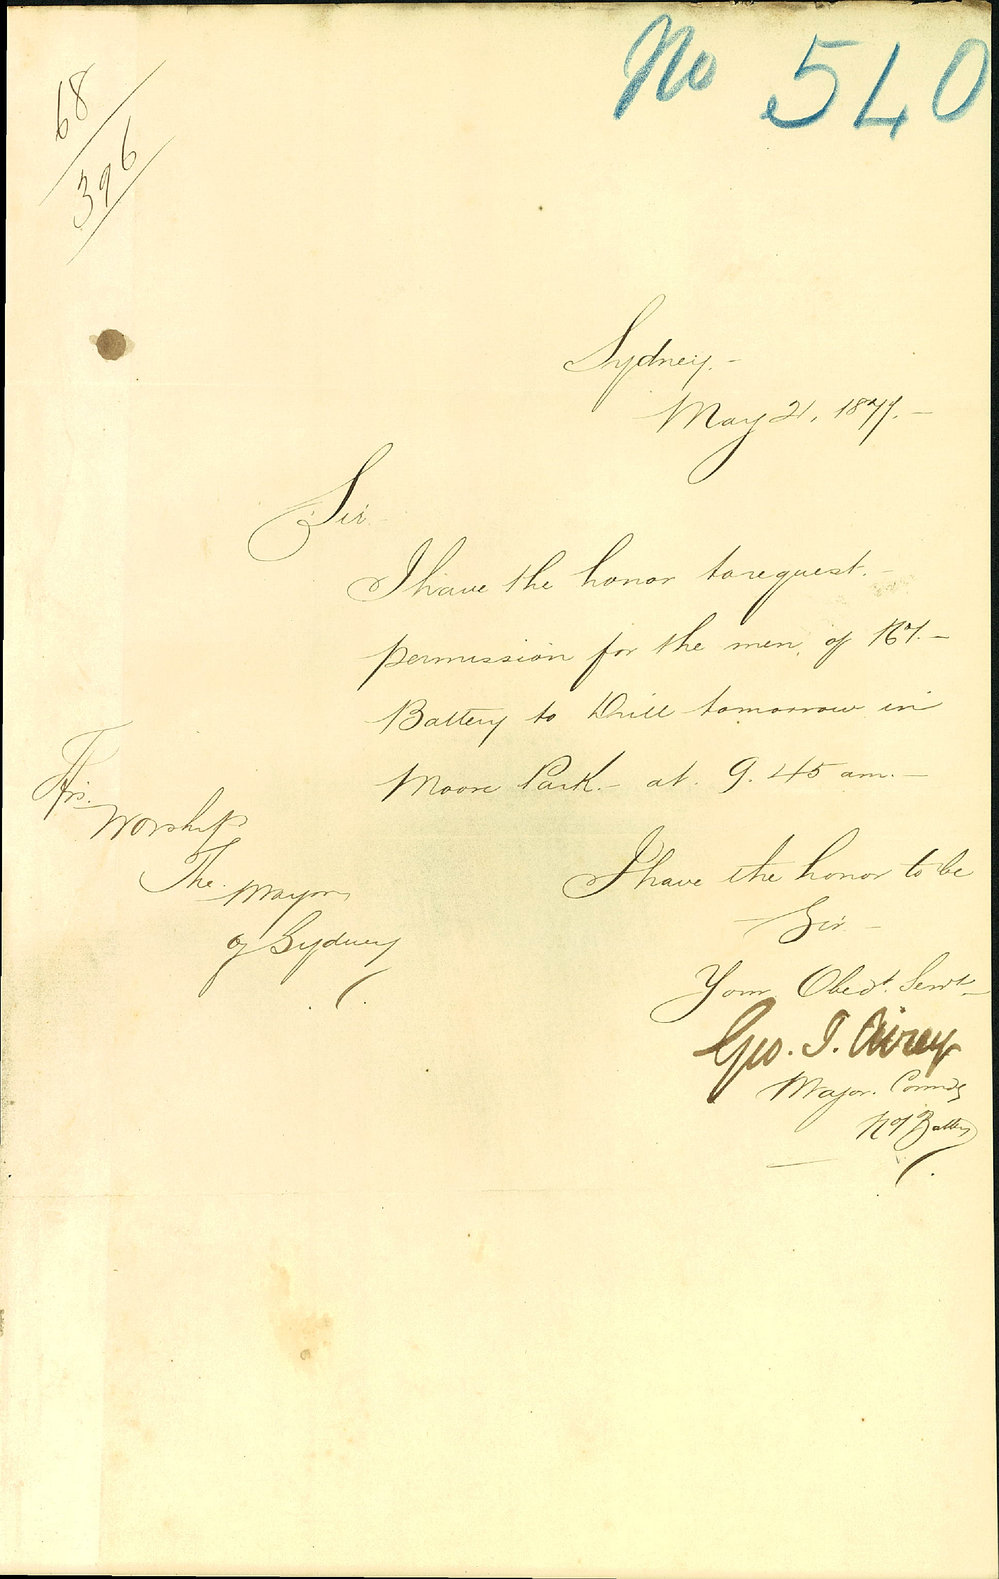 No 540
68
396
Sydney. -
May 21, 1877. -
Sir
I have the honor to request. -
permission for the men, of No 1. -
Battery to Drill tomorrow in
Moore Park. - at. 9.45 am. -
His.
Worship
The Mayor
of Sydney
I have the honor to be
Sir -
Your Obedt. Servt -
Geo. J. Airey
Major. Commdg
No 1 Battery